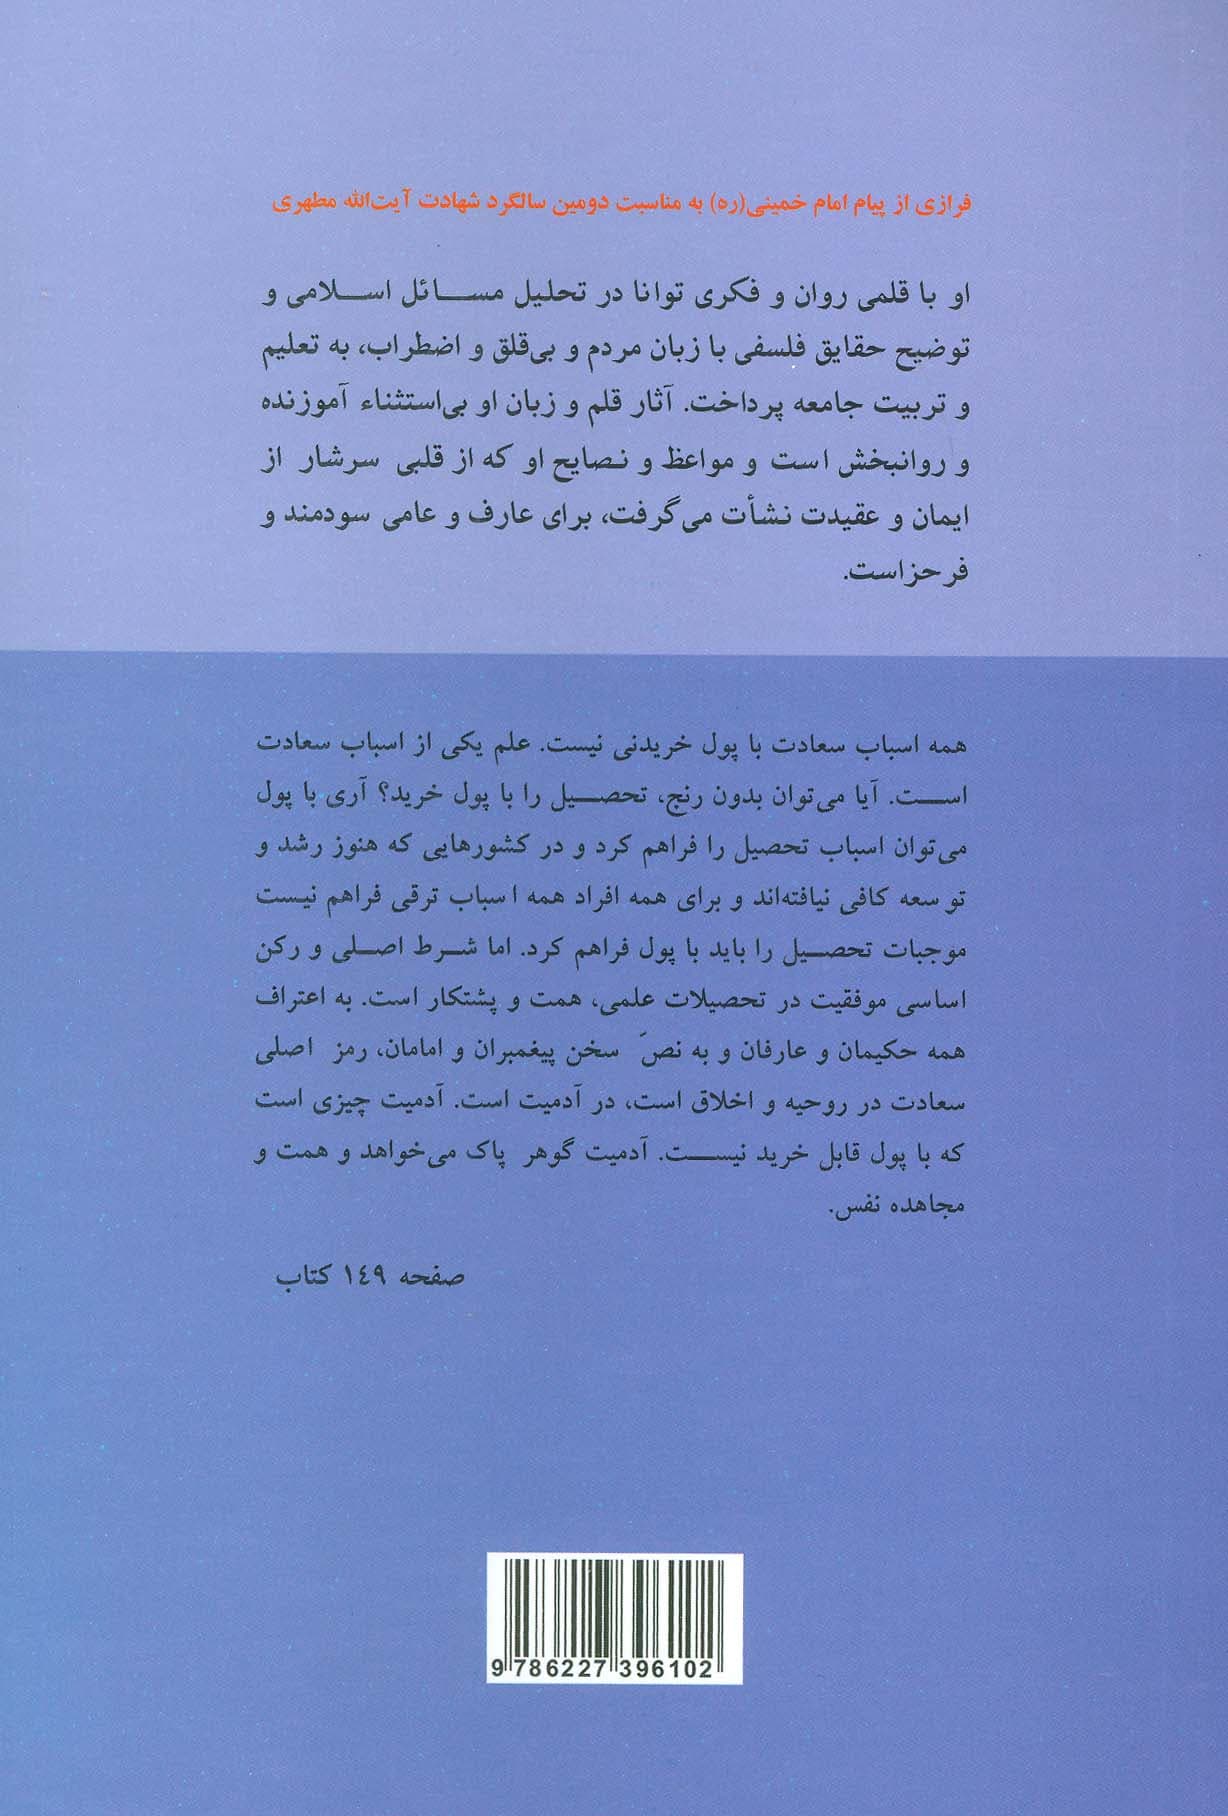 فرازی از پیام امام خمینی(ره) به مناسبت دومین سالگرد شهادت آیت‌الله مطهری
او با قلمی روان و فکری توانا در تحلیل مسائل اسلامی و
توضیح حقایق فلسفی با زبان مردم و بی‌قلق و اضطراب، به تعلیم
و تربیت جامعه پرداخت. آثار قلم و زبان او بی‌استثناء آموزنده
و روانبخش است و مواعظ و نصایح او که از قلبی سرشار از
ایمان و عقیدت نشأت می‌گرفت، برای عارف و عامی سودمند و
فرحزاست.
همه اسباب سعادت با پول خریدنی نیست. علم یکی از اسباب سعادت
است. آیا می‌توان بدون رنج، تحصیل را با پول خرید؟ آری با پول
می‌توان اسباب تحصیل را فراهم کرد و در کشورهایی که هنوز رشد و
توسعه کافی نیافته‌اند و برای همه افراد همه اسباب ترقی فراهم نیست
موجبات تحصیل را باید با پول فراهم کرد. اما شرط اصلی و رکن
اساسی موفقیت در تحصیلات علمی، همت و پشتکار است. به اعتراف
همه حکیمان و عارفان و به نصَ سخن پیغمبران و امامان، رمز اصلی
سعادت در روحیه و اخلاق است، در آدمیت است. آدمیت چیزی است
که با پول قابل خرید نیست. آدمیت گوهر پاک می‌خواهد و همت و
مجاهده نفس.
صفحه ١٤٩ کتاب
9 786227 396102